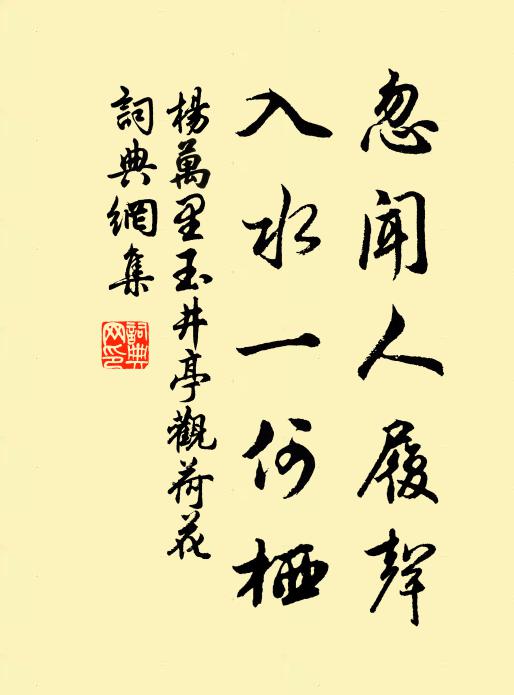 忽聞人履聲
入水一何栖
楊萬里玉井亭觀荷花
詞典網集
詞典
網印